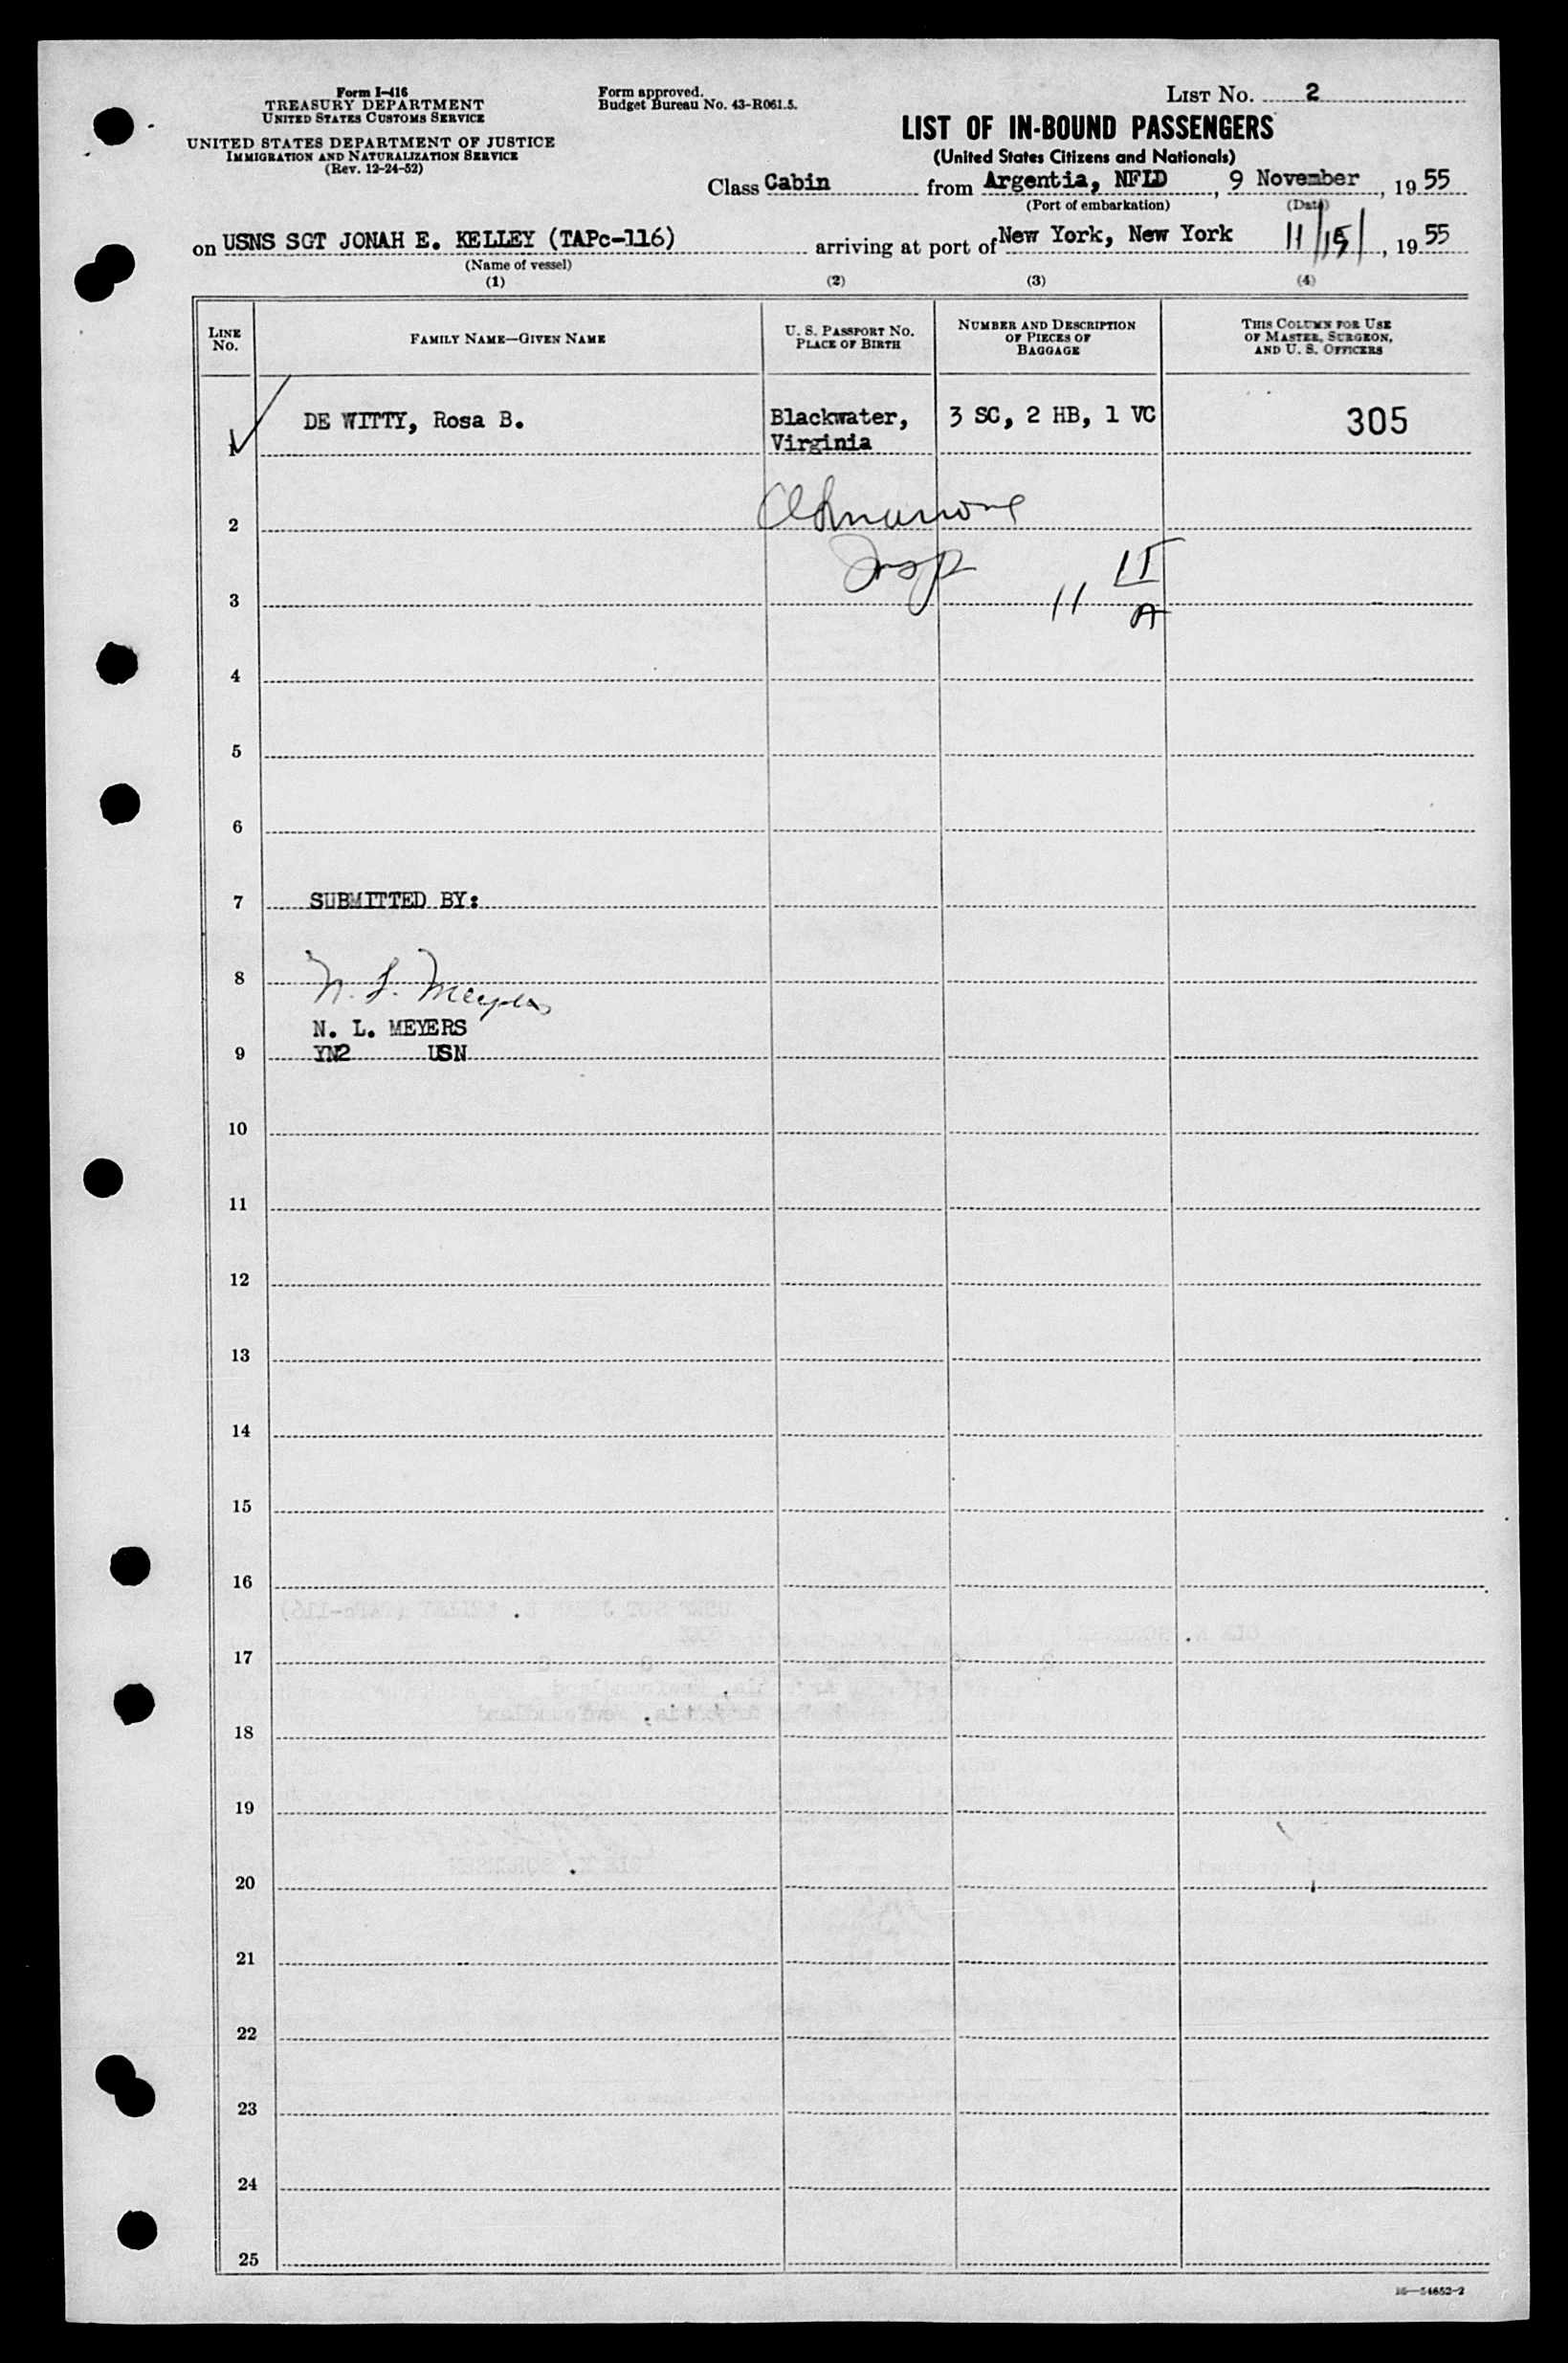 Form I-416
TREASURY DEPARTMENT
UNITED STATES CUSTOMS SERVICE
UNITED STATES DEPARTMENT OF JUSTICE
IMMIGRATION AND NATURALIZATION SERVICE
(Rev. 12-24-52)
Form approved.
Budget Bureau No. 43-R061.5.
LIST NO. 2
LIST OF IN-BOUND PASSENGERS
(United States Citizens and Nationals)
Class Cabin from Argentia, NFLD, 9 November, 1955
(Port of embarkation) (Date)
on USNS SGT JONAH E. KELLEY (TAPc-116) arriving at port of New York, New York 11/15/, 1955
(Name of vessel)
(1) (2) (3) (4)
LINE NO.
FAMILY NAME—GIVEN NAME
U. S. PASSPORT NO.
PLACE OF BIRTH
NUMBER AND DESCRIPTION
OF PIECES OF
BAGGAGE
THIS COLUMN FOR USE
OF MASTER, SURGEON,
AND U. S. OFFICERS
1 DE WITTY, Rosa B. Blackwater, 3 SC, 2 HB, 1 VC 305
Virginia
2
Insp
3 11
A
4
5
6
7 SUBMITTED BY:
8 N. L. Meyers
N. L. MEYERS
9 YN2 USN
10
11
12
13
14
15
16
17
18
19
20
21
22
23
24
25
16—54652-2